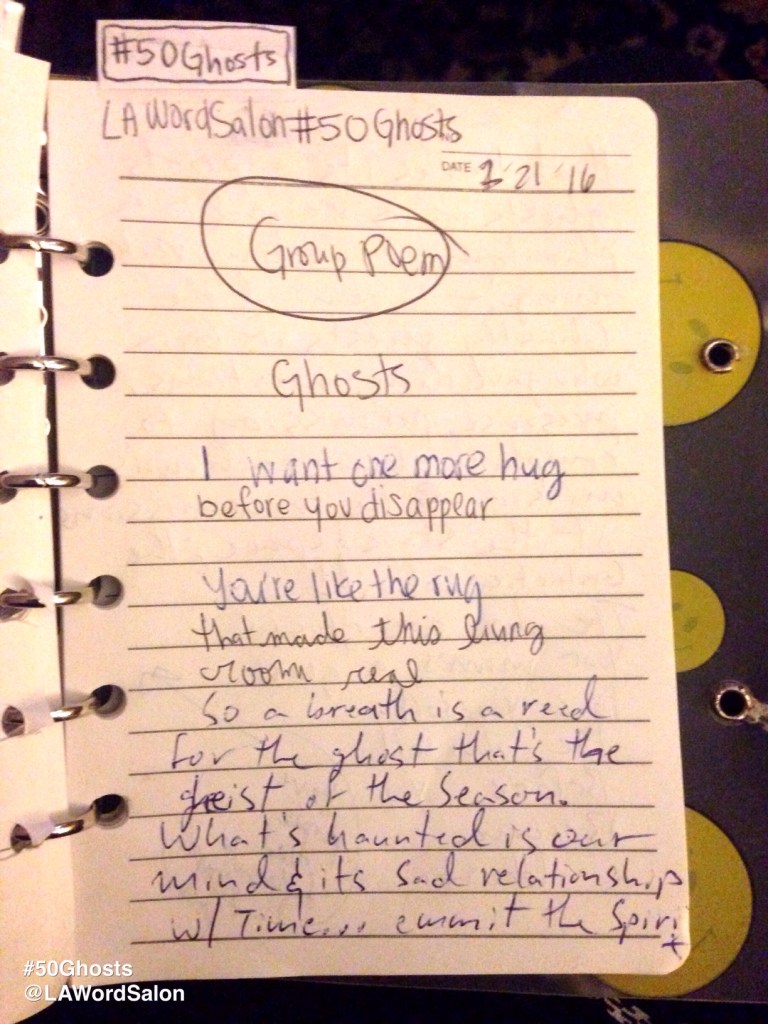 #50Ghosts
LA WordSalon#50Ghosts
DATE 1·21·'16
Group Poem
Ghosts
I want one more hug
before you disappear
You're like the rug
that made this living
room real
So a breath is a reed
for the ghost that's the
geist of the Season.
What's haunted is our
mind & its sad relationship
w/ Time... emmit the Spirit
#50Ghosts
@LAWordSalon